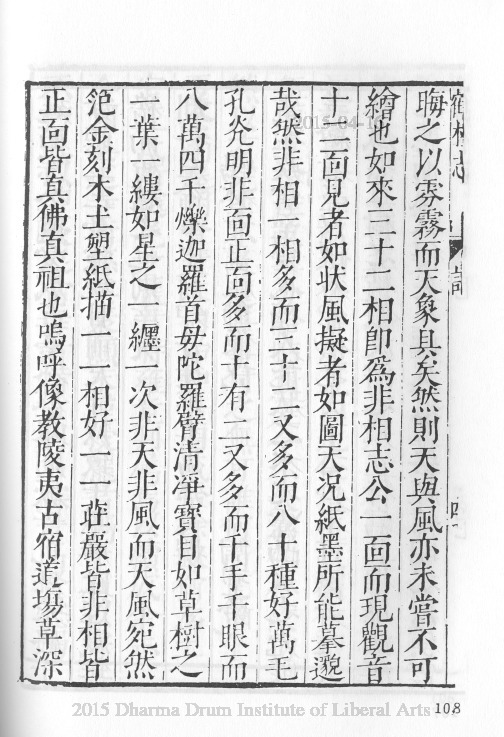 晦之以雰霧而天象具矣然則天與風亦未嘗不可
繪也如來三十二相卽爲非相志公一面而現觀音
十二面見者如狀風擬者如圖天况紙墨所能摹邈
哉然非相一相多而三十二又多而八十種好萬毛
孔光明非面正面多而十有二又多而千手千眼而
八萬四千爍迦羅首毋陀羅臂清淨寶目如草樹之
一葉一縷如星之一纏一次非天非風而天風宛然
笵金刻木土塑紙描一一相好一一莊嚴皆非相皆
正面皆真佛真祖也嗚呼像教陵夷古宿道塲草深
2015-04-1
2015 Dharma Drum Institute of Liberal Arts
108